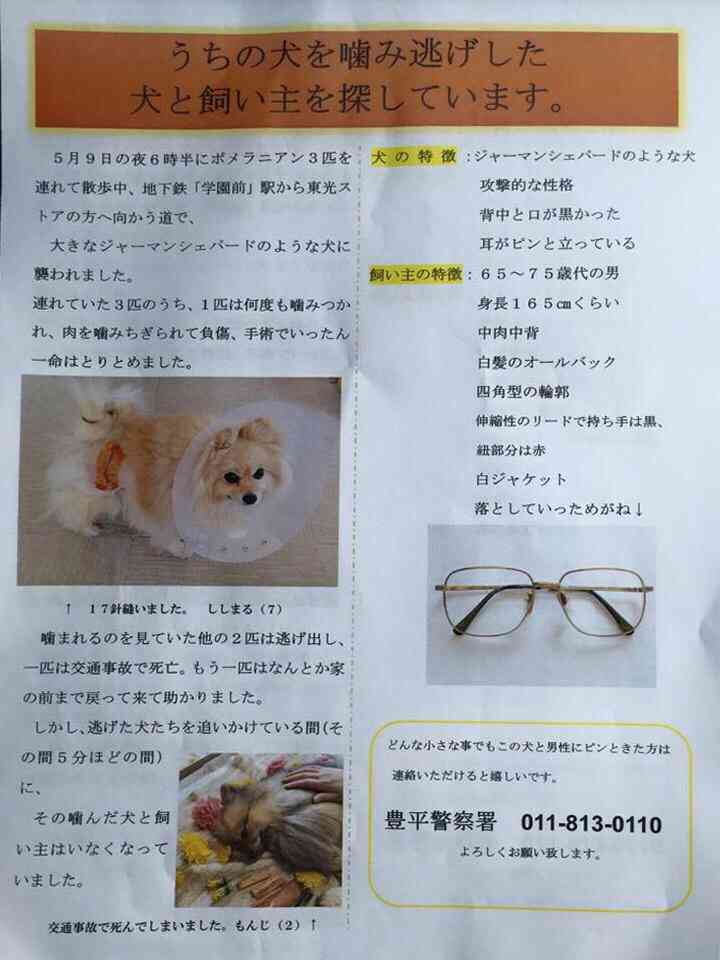 うちの犬を噛み逃げした
犬と飼い主を探しています。
５月９日の夜６時半にポメラニアン３匹を
連れて散歩中、地下鉄「学園前」駅から東光ス
トアの方へ向かう道で、
大きなジャーマンシェパードのような犬に
襲われました。
連れていた３匹のうち、１匹は何度も噛みつか
れ、肉を噛みちぎられて負傷、手術でいったん
一命はとりとめました。
↑ １７針縫いました。 ししまる（7）
噛まれるのを見ていた他の２匹は逃げ出し、
一匹は交通事故で死亡。もう一匹はなんとか家
の前まで戻って来て助かりました。
しかし、逃げた犬たちを追いかけている間（そ
の間５分ほどの間）
に、
その噛んだ犬と飼
い主はいなくなって
いました。
交通事故で死んでしまいました。もんじ（2）↑
犬の特徴：ジャーマンシェパードのような犬
攻撃的な性格
背中と口が黒かった
耳がピンと立っている
飼い主の特徴：６５～７５歳代の男
身長１６５㎝くらい
中肉中背
白髪のオールバック
四角型の輪郭
伸縮性のリードで持ち手は黒、
紐部分は赤
白ジャケット
落としていっためがね↓
どんな小さな事でもこの犬と男性にピンときた方は
連絡いただけると嬉しいです。
豊平警察署 011-813-0110
よろしくお願い致します。